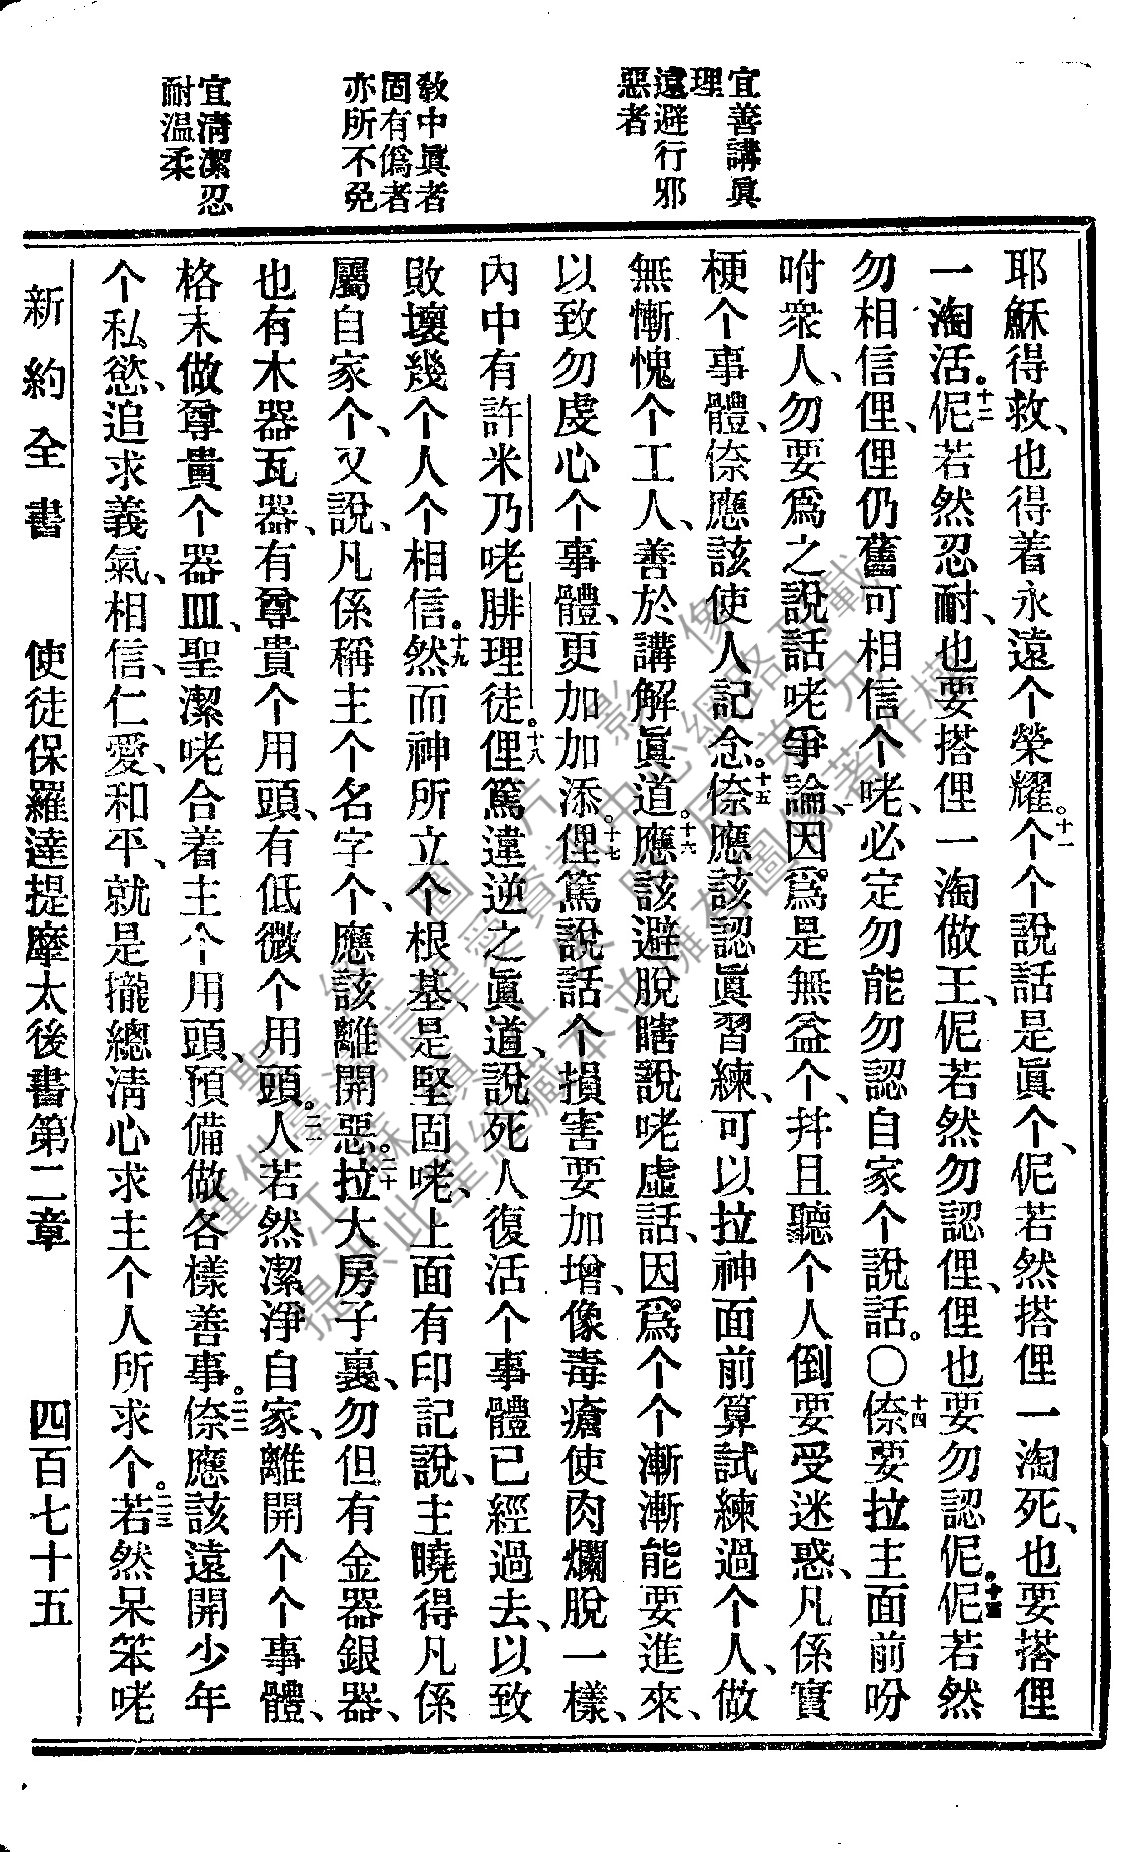 宜善講眞
理
遠避行邪
惡者
敎中眞者
固有僞者
亦所不免
宜淸潔忍
耐温柔
耶穌得救、也得着永遠个榮耀。十一个个說話是眞个、伲若然搭俚一淘死、也要搭俚
一淘活。十二伲若然忍耐、也要搭俚一淘做王、伲若然勿認俚、俚也要勿認伲。十三伲若然
勿相信俚、俚仍舊可相信个咾、必定勿能勿認自家个說話。〇十四倷要拉主面前吩
咐衆人、勿要爲之說話咾爭論、因爲是無益个、幷且聽个人倒要受迷惑、凡係實
梗个事體、倷應該使人記念。十五倷應該認眞習練、可以拉神面前算試練過个人、做
無慚愧个工人、善於講解眞道。十六應該避脫瞎說咾虛話、因爲个个漸漸能要進來、
以致勿虔心个事體、更加加添。十七俚篤說話个損害要加增、像毒瘡使肉爛脫一樣、
內中有許米乃咾腓理徒。十八俚篤違逆之眞道、說死人復活个事體已經過去、以致
敗壞幾个人个相信。十九然而神所立个根基、是堅固咾、上面有印記說、主曉得凡係
屬自家个、又說、凡係稱主个名字个、應該離開惡。二十拉大房子裏、勿但有金器銀器、
也有木器瓦器、有尊貴个用頭、有低微个用頭。二一人若然潔淨自家、離開个个事體、
格末做尊貴个器皿、聖潔咾合着主个用頭、預備做各樣善事。二二倷應該遠開少年
个私慾、追求義氣、相信、仁愛、和平、就是攏總淸心求主个人所求个。二三若然呆笨咾
新約全書 使徒保羅達提摩太後書第二章 四百七十五